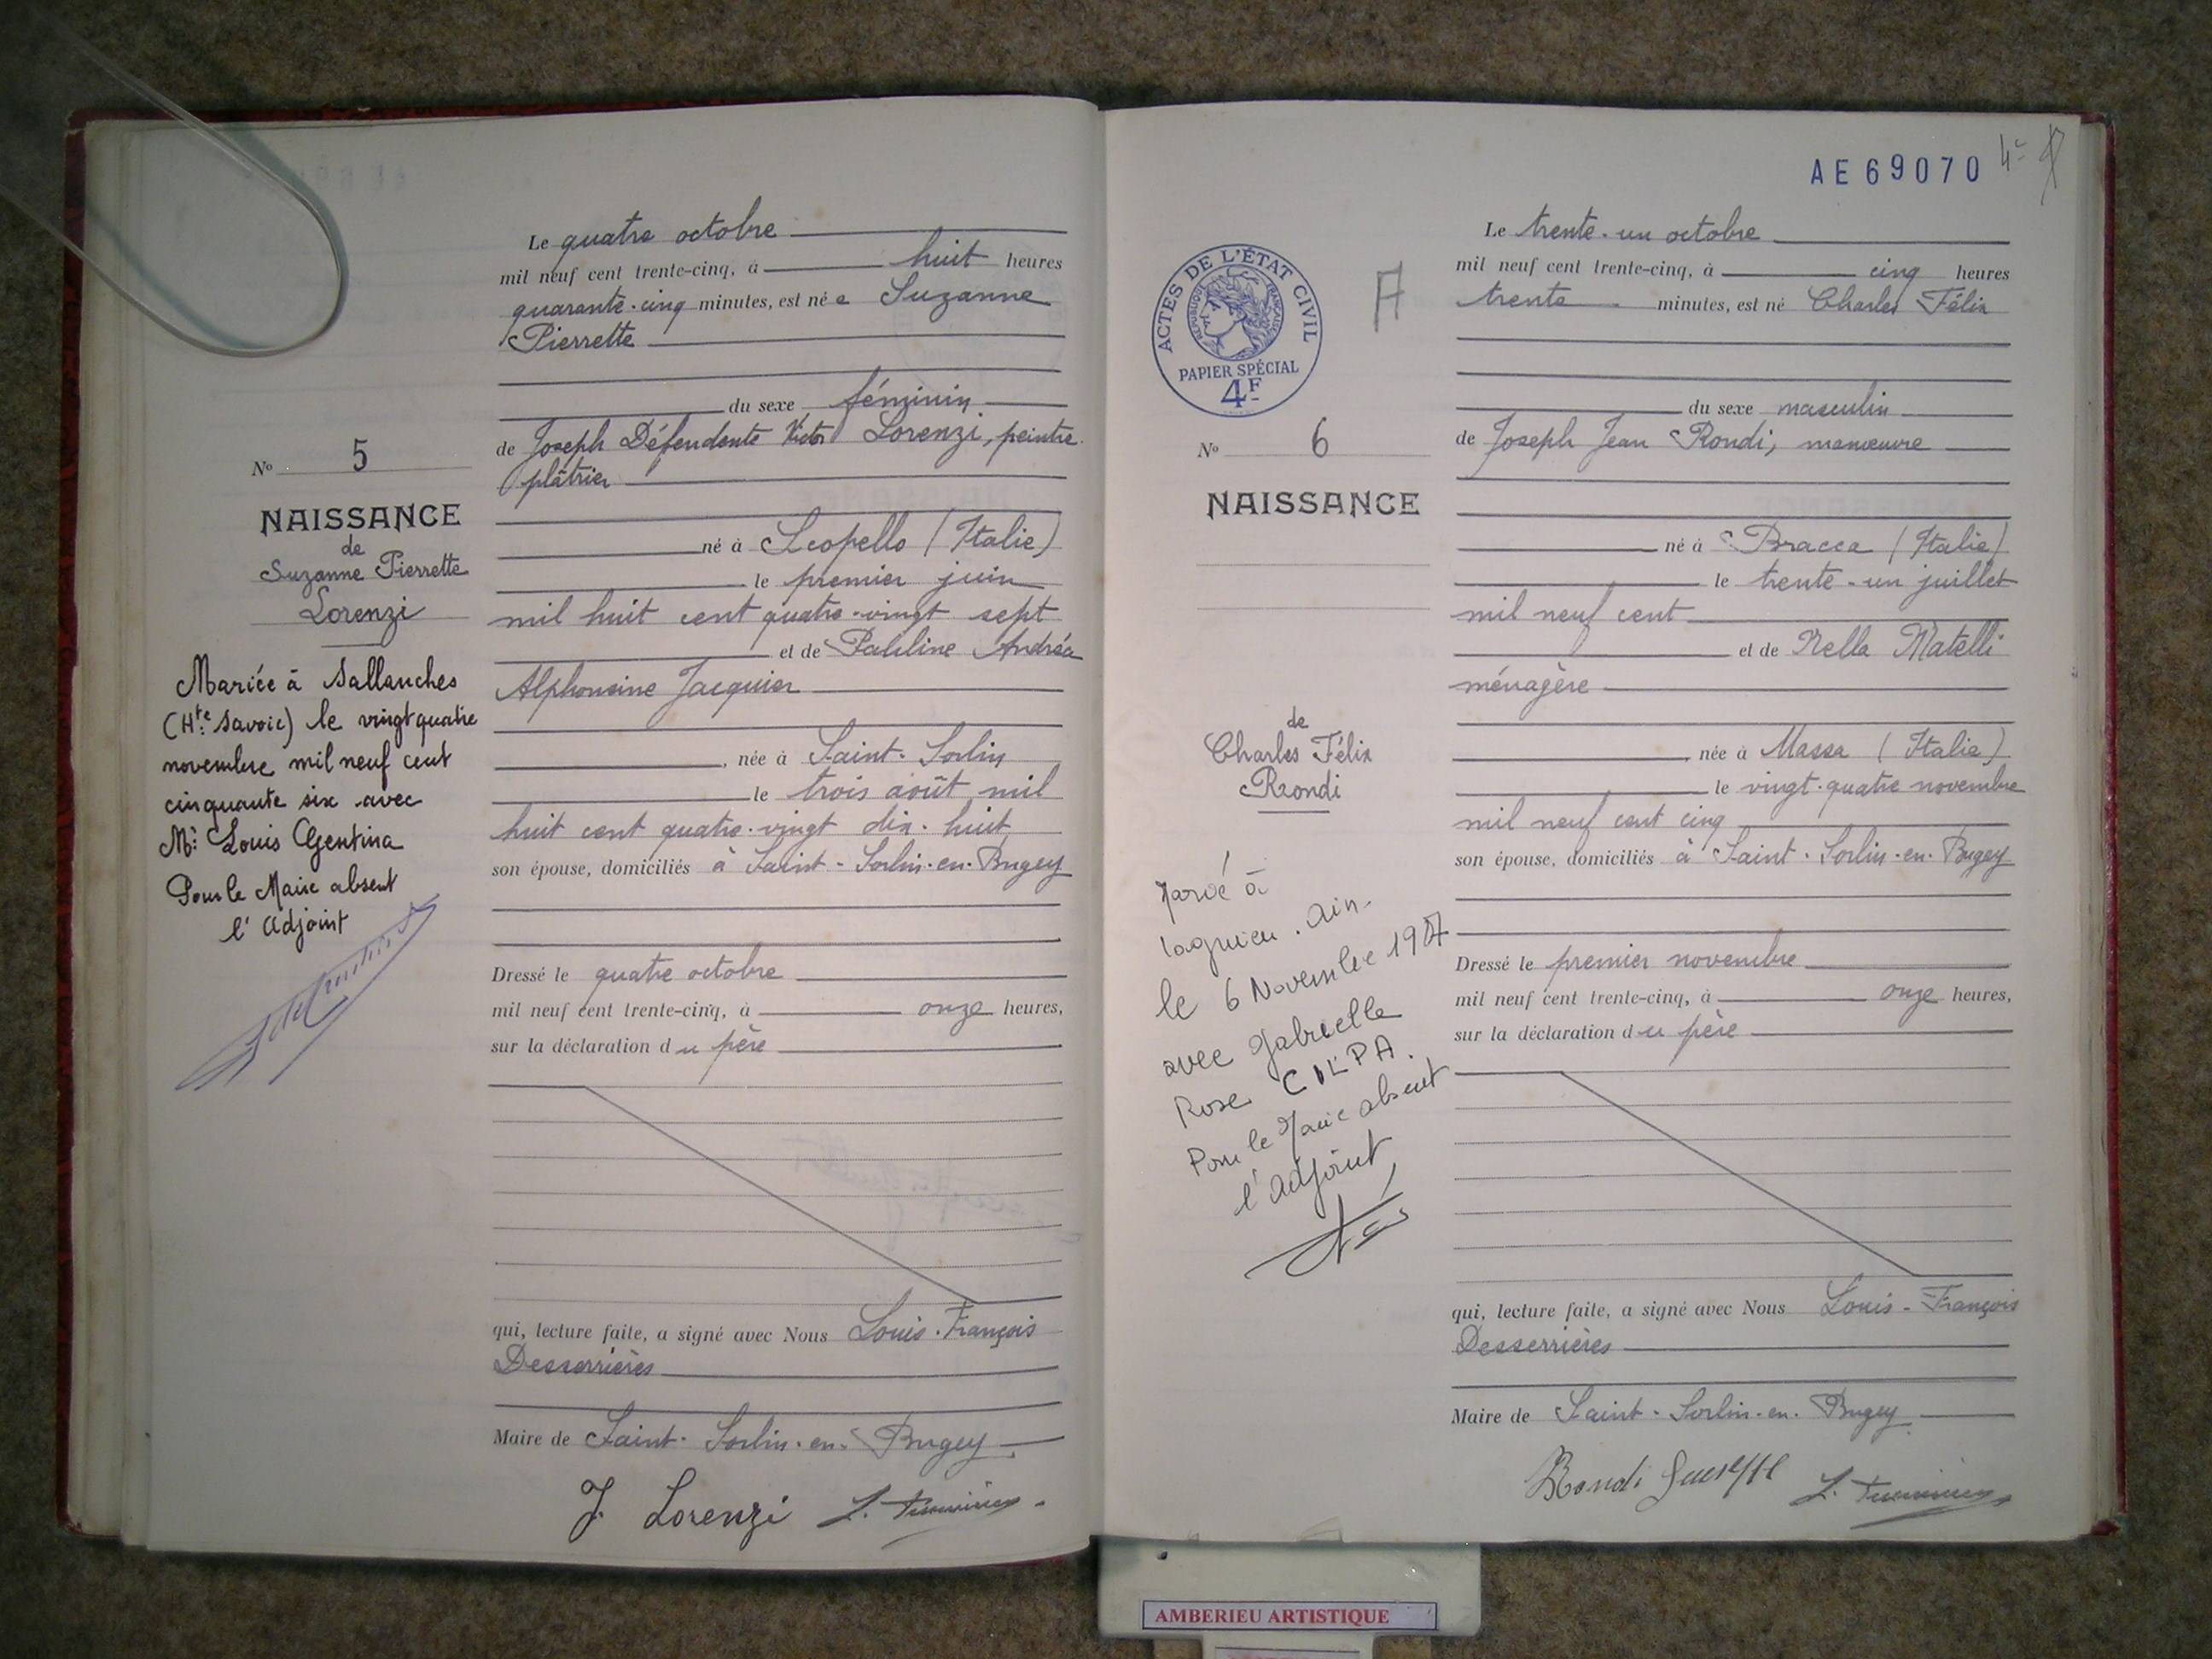 Le quatre octobre
mil neuf cent trente-cinq, à huit heures
quarante-cinq minutes, est née Suzanne
Pierrette
du sexe féminin
de Joseph Défendente Victor Lorenzi, peintre
plâtrier
né à Scopello (Italie)
le premier juin
mil huit cent quatre-vingt sept
et de Pauline Andréa
Alphonsine Jacquier
, née à Saint-Sorlin
le trois août mil
huit cent quatre-vingt dix-huit
son épouse, domiciliés à Saint-Sorlin-en-Bugey
Dressé le quatre octobre
mil neuf cent trente-cinq, à onze heures,
sur la déclaration du père
qui, lecture faite, a signé avec Nous Louis-François
Desserrières
Maire de Saint-Sorlin-en-Bugey
J. Lorenzi
No 5
NAISSANCE
de
Suzanne Pierrette
Lorenzi
Mariée à Sallanches
(Hte Savoie) le vingt quatre
novembre mil neuf cent
cinquante six avec
Mr Louis Gentina
Pour le Maire absent
l'Adjoint
AE69070
4e
ACTES DE L'ÉTAT CIVIL
RÉPUBLIQUE FRANÇAISE
PAPIER SPÉCIAL
4F
A
No 6
NAISSANCE
de
Charles Félix
Rondi
Marié à
lagnieu. Ain.
le 6 Novembre
avec Gabrielle
Rose
Pour le Maire absent
l'adjoint
Le trente-un octobre
mil neuf cent trente-cinq, à cinq heures
trente minutes, est né Charles Félix
du sexe masculin
de Joseph Jean Rondi, manœuvre
né à Bracca (Italie)
le trente-un juillet
mil neuf cent
et de Nella Matelli
ménagère
, née à Massa (Italie)
le vingt-quatre novembre
mil neuf cent cinq
son épouse, domiciliés à Saint-Sorlin-en-Bugey
Dressé le premier novembre
mil neuf cent trente-cinq, à onze heures,
sur la déclaration du père
qui, lecture faite, a signé avec Nous Louis-François
Desserrières
Maire de Saint-Sorlin-en-Bugey
Rondi Giuseppe
AMBERIEU ARTISTIQUE